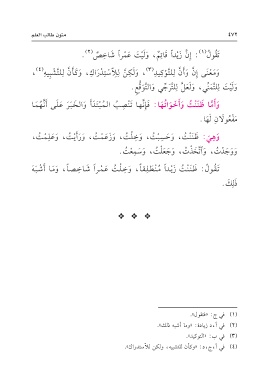 ٤٧٢
متون طالب العلم
تَقُولُ(١): إِنَّ زَيْداً قَائِمٌ، وَلَيْتَ عَمْراً شَاخِصٌ(٢).
وَمَعْنَى إِنَّ وَأَنَّ لِلتَّوْكِيدِ(٣)، وَلَكِنَّ لِلِاسْتِدْرَاكِ، وَكَأَنَّ لِلتَّشْبِيهِ(٤)،
وَلَيْتَ لِلتَّمَنِّي، وَلَعَلَّ لِلتَّرَجِّي وَالتَّوَقُّعِ.
وَأَمَّا ظَنَنْتُ وَأَخَوَاتُهَا: فَإِنَّهَا تَنْصِبُ المُبْتَدَأَ وَالخَبَرَ عَلَى أَنَّهُمَا
مَفْعُولَانِ لَهَا.
وَهِيَ: ظَنَنْتُ، وَحَسِبْتُ، وَخِلْتُ، وَزَعَمْتُ، وَرَأَيْتُ، وَعَلِمْتُ،
وَوَجَدْتُ، وَاتَّخَذْتُ، وَجَعَلْتُ، وَسَمِعْتُ.
تَقُولُ: ظَنَنْتُ زَيْداً مُنْطَلِقاً، وَخِلْتُ عَمْراً شَاخِصاً، وَمَا أَشْبَهَ
ذَلِكَ.
(١) في ج: «فتقول».
(٢) في أ، د زيادة: «وما أشبه ذلك».
(٣) في ب: «التوكيد».
(٤) في أ، ج، د: «وكأن للتشبيه، ولكن للاستدراك».